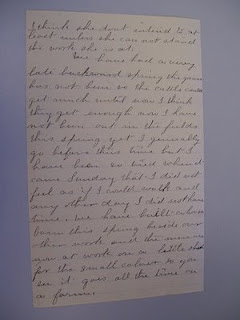 I think she dont intend to at
least unless she can not stand
the work she is at.
We have had a very
late backward spring the grass
has not been so the cattle could
get much until now I think
they get enough now I have
not been out in the fields
this spring yet I generally
go before this time but I
have been so tired when it
came Sunday that I did not
feel as if I could walk and
any other day I did not have
time. We have built a
barn this spring beside our
other work and the men
now at work on a little
for the small calves so you
see it goes all the time on
a farm.